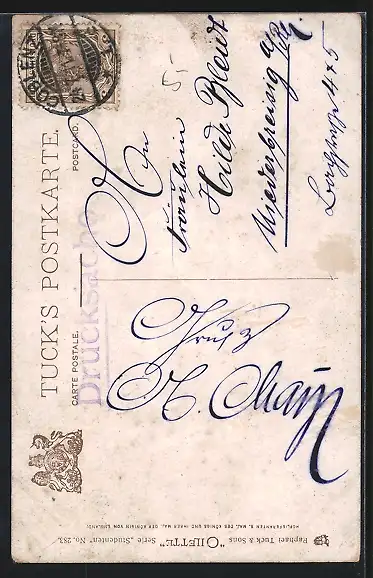 TUCK'S POSTKARTE.
CARTE POSTALE. POSTCARD.
Drucksache
An
Fräulein
Hilde
Niederbreisig a/Rh.
Gruß
Raphael Tuck & Sons "OILETTE" Serie "Studenten" No. 283.
HOFLIEFERANTEN S. MAJ. DES KÖNIGS UND IHRER MAJ. DER KÖNIGIN VON ENGLAND.